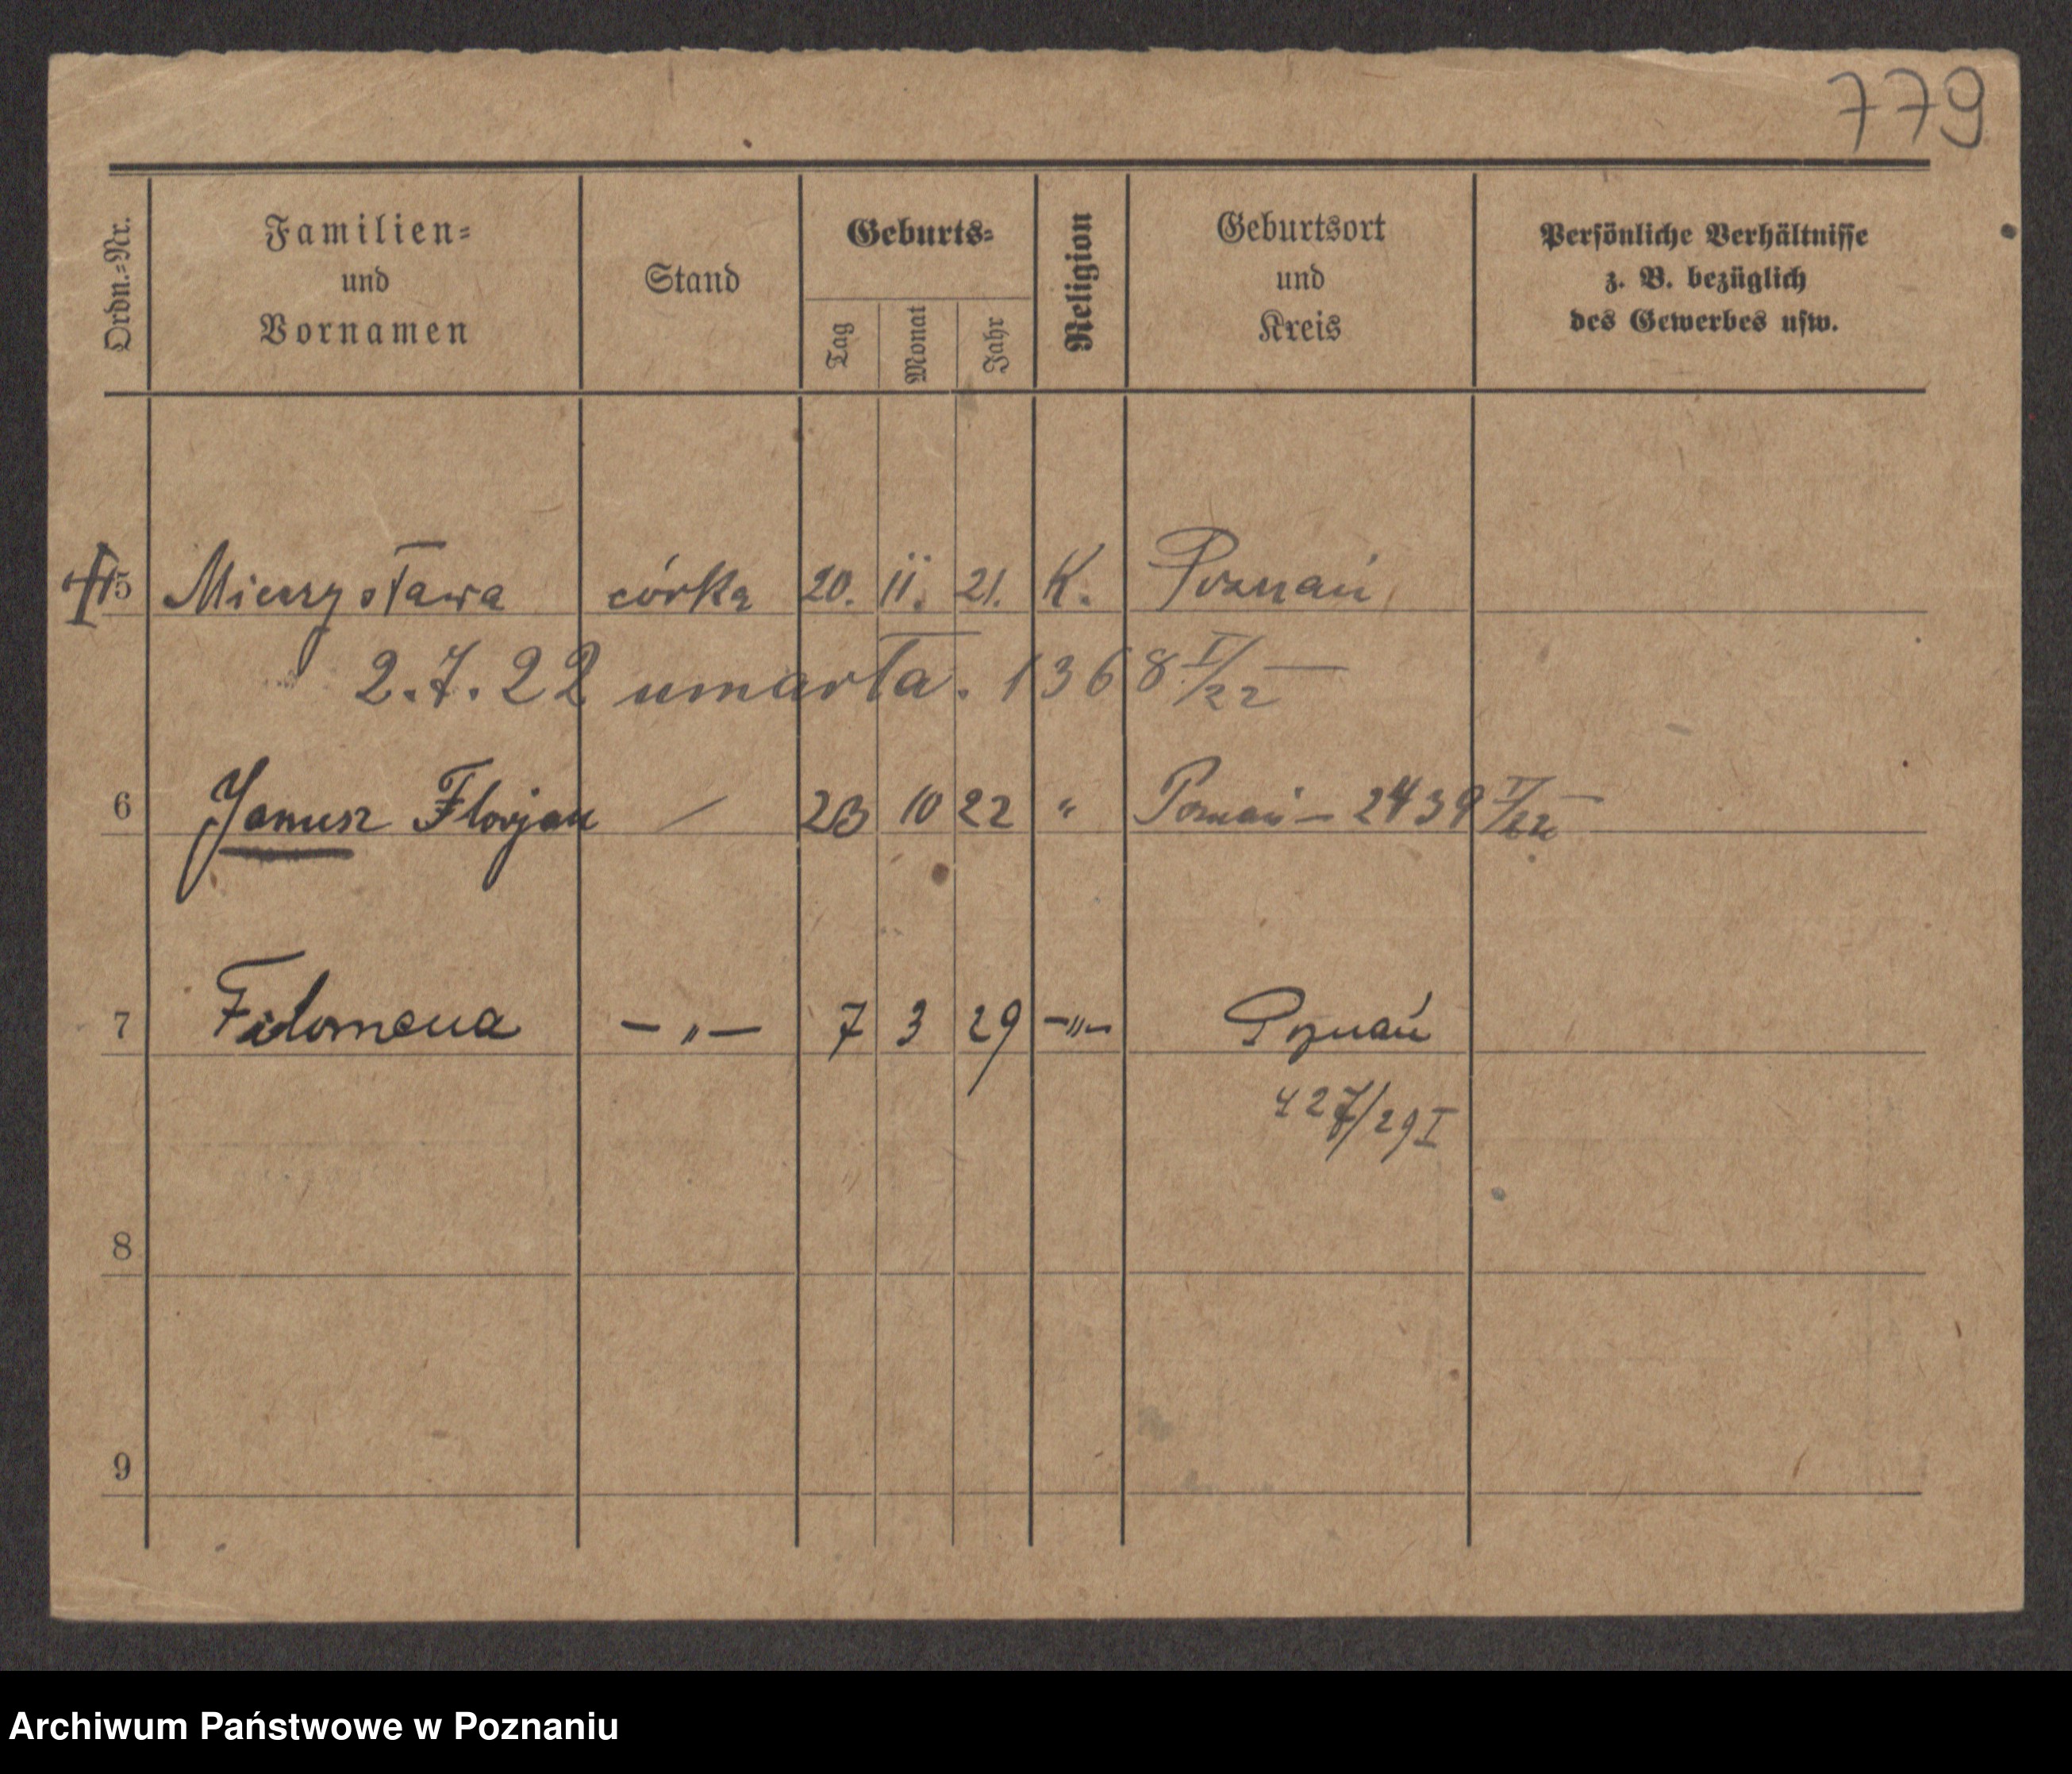 779
Ordn.=Nr.
Familien=
und
Vornamen
Stand
Geburts=
Tag
Monat
Jahr
Religion
Geburtsort
und
Kreis
Persönliche Verhältnisse
z. B. bezüglich
des Gewerbes usw.
5 Mieczysława córka 20. 11. 21. K. Poznań
2.7.22 umarła. 1368 I/22
6 Janusz Florjan 23 10 22 " Poznań – 2439 I/22
7 Filomena – „ – 7 3 29 – „ – Poznań
427/29 I
8
9
Archiwum Państwowe w Poznaniu